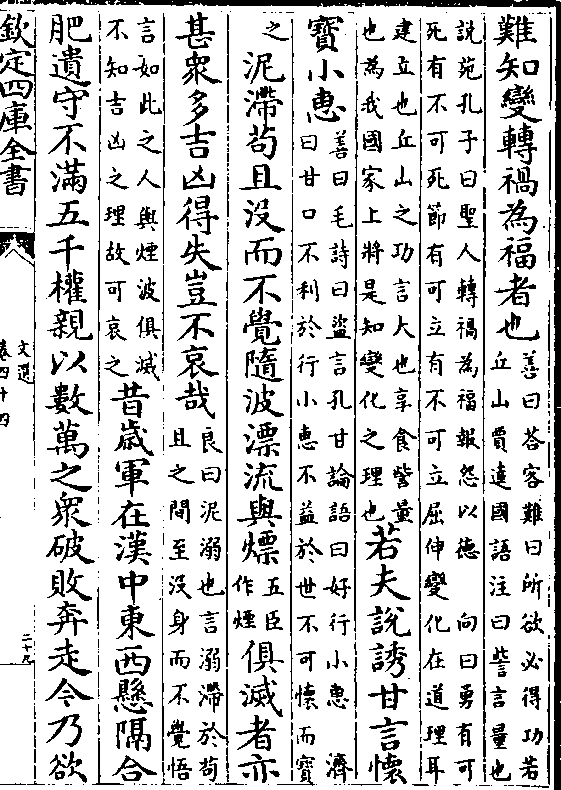 難知變轉禍為福者也善曰荅客難曰所欲必得功若
丘山賈逵國語注曰訾言量也
說苑孔子曰聖人轉禍為福報怨以德 向曰勇有可
死有不可死節有可立有不可立屈伸變化在道理耳
建立也丘山之功言大也享食訾量
也為我國家上將是知變化之理也若夫說誘甘言懷
寳小惠善曰毛詩曰盜言孔甘論語曰好行小惠 濟
曰甘口不利於行小惠不益於世不可懷而寳
之泥滯苟且没而不覺隨波漂流與熛五臣
作煙俱滅者亦
甚衆多吉凶得失豈不哀哉良曰泥溺也言溺滯於苟
且之間至没身而不覺悟
言如此之人與煙波俱滅
不知吉凶之理故可哀之昔歳軍在漢中東西懸隔合
肥遺守不滿五千權親以數萬之衆破敗奔走今乃欲
欽定四庫全書
文選
卷四十四
二十九